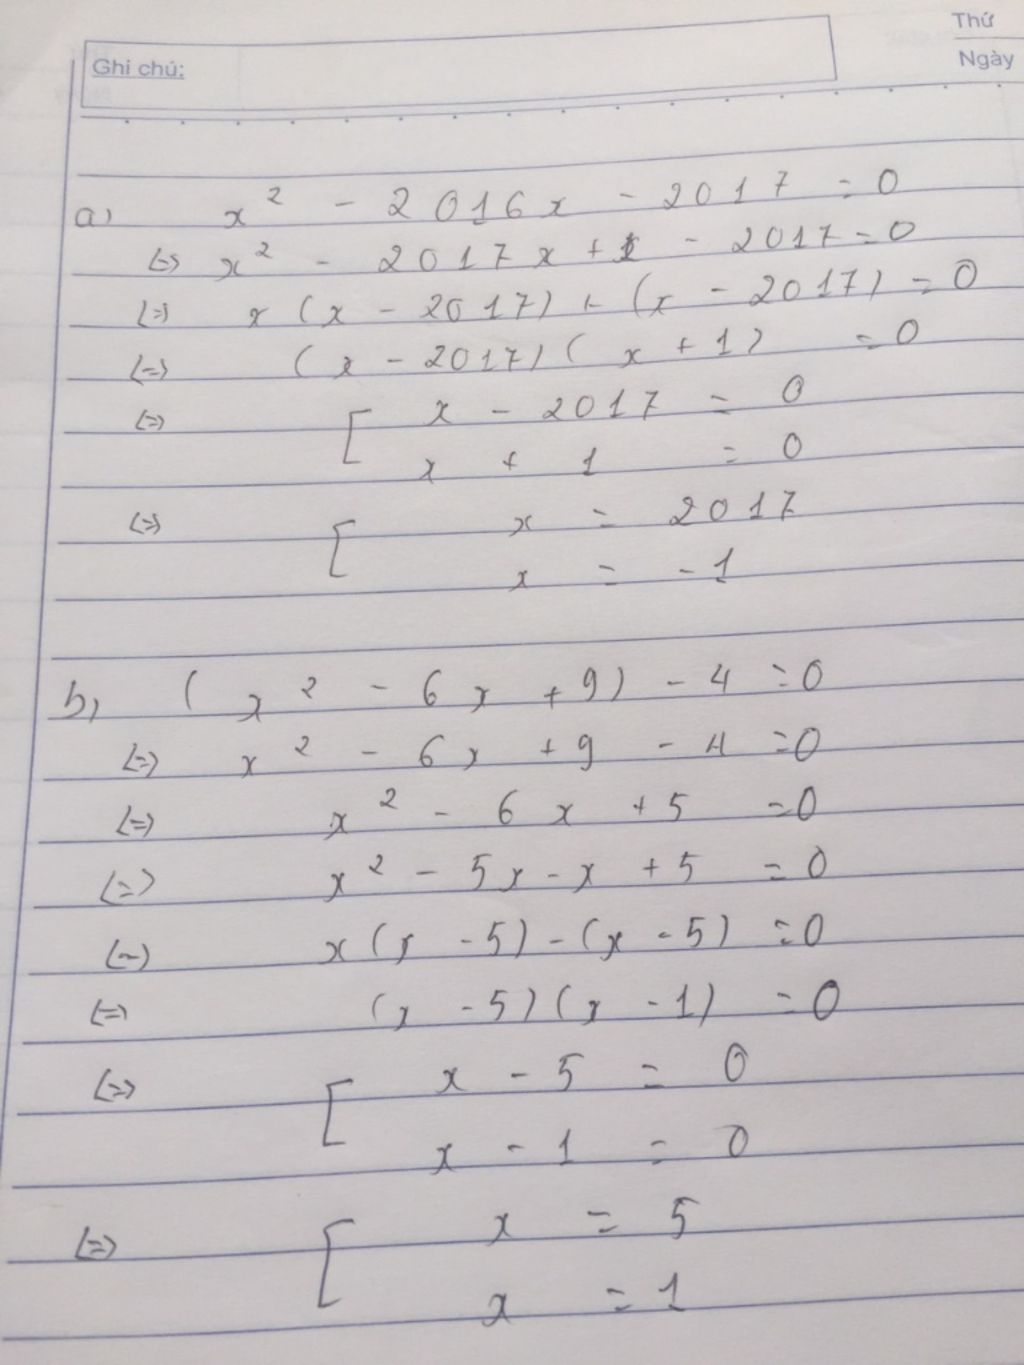 Thứ
Ngày
Ghi chú:
a) x² - 2016x - 2017 = 0
(=) x² - 2017x + x - 2017 = 0
(=) x(x - 2017) + (x - 2017) = 0
(=) (x - 2017)(x + 1) = 0
(=) [ x - 2017 = 0
x + 1 = 0
(=) [ x = 2017
x = -1
b) (x² - 6x + 9) - 4 = 0
(=) x² - 6x + 9 - 4 = 0
(=) x² - 6x + 5 = 0
(=) x² - 5x - x + 5 = 0
(=) x(x - 5) - (x - 5) = 0
(=) (x - 5)(x - 1) = 0
(=) [ x - 5 = 0
x - 1 = 0
(=) [ x = 5
x = 1